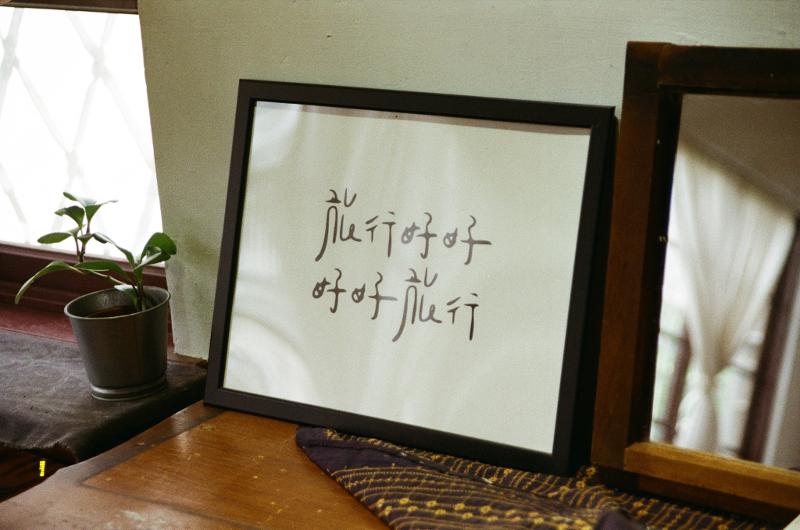 旅行好好
好好旅行